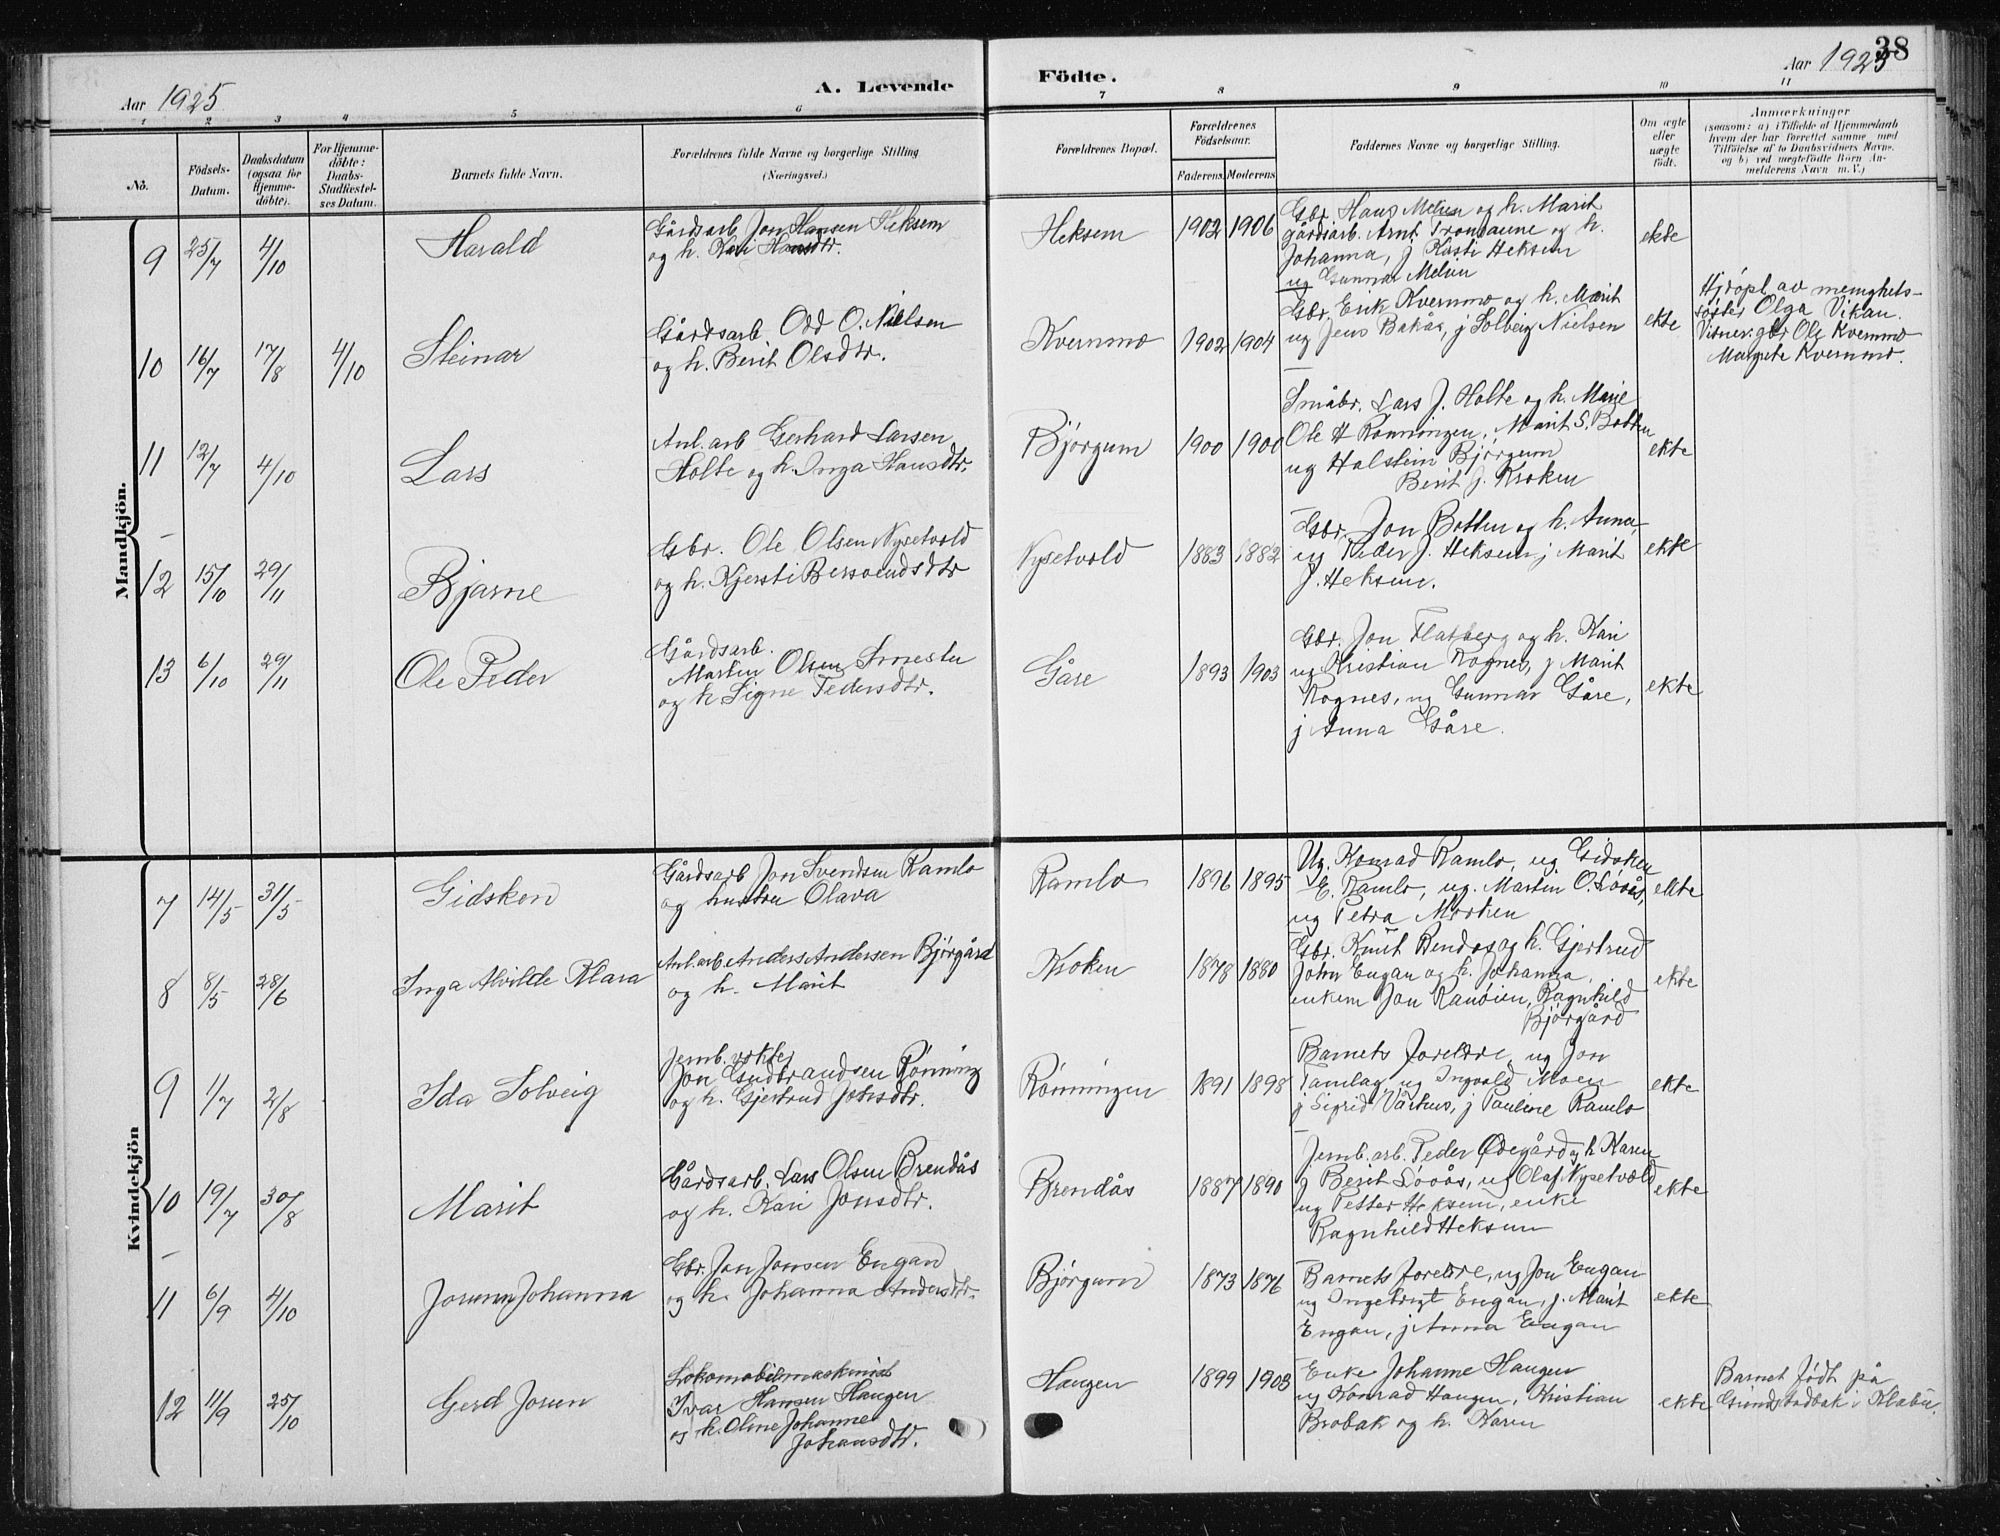 38
Aar 1925
A. Levende Födte.
Aar 1925
1 2 3 4 5 6 7 8 9 10 11
No.
Födsels-
Datum.
Daabsdatum
(ogsaa for
Hjemme-
döbte).
For Hjemme-
döbte:
Daabs-
Stadfæstel-
ses Datum.
Barnets fulde Navn.
Forældrenes fulde Navne og borgerlige Stilling
(Næringsvei.)
Forældrenes Bopæl.
Forældrenes
Födselsaar.
Faderens. Moderens.
Faddernes Navne og borgerlige Stilling.
Om ægte
eller
uægte
födt.
Anmærkninger
(saasom: a) i Tilfælde af Hjemmedaab
hvem der har forrettet samme med
Tilföielse af to Daabsvidners Navne,
og b) ved uægtefödte Börn An-
melderens Navn m. V.)
Mandkjön.
9 25/7 4/10 Harald
Gårdsarb. Jon Hansen Heksem
og h. Kari Hansdtr.
Heksem 1902 1906
Gbr. Hans Melum og h. Marit
gårdsarb. Arnt Trondaune og h.
Johanna, j Kasti Heksem
ug Gunnar Melum
ekte
10 16/7 17/8 4/10 Steinar
Gårdsarb. Odd O. Nielsen
og h. Berit Olsdtr.
Kvernmo 1902 1904
Gbr. Erik Kvernmo og h. Marit
ug Jens Bakås, j Solveig Nielsen
ekte
Hj.døpt av menighets-
søster Olga Vikan.
Vitner: gbr Ole Kvernmo
Margrete Kvernmo.
11 12/7 4/10 Lars
Anl.arb Gerhard Larsen
Holte og h. Inga Hansdtr.
Bjørgum 1900 1900
Småbr. Lars J. Holte og h. Marie
Ole H Rønningen, Marit S. Botten
ug Halstein Bjørgum
Berit J. Kroken
ekte
12 15/10 29/11 Bjarne
Gbr. Ole Olsen Nysetvold
og h. Kjersti Bersvendsdtr
Nysetvold 1883 1882
Gbr. Jon Botten og h. Anna,
ug Peder J. Heksem j Marit
J. Heksem.
ekte
13 6/10 29/11 Ole Peder
Gårdsarb.
Martin Olsen Smestu
og h Signe Pedersdtr.
Gåre 1893 1903
Gbr. Jon Flatberg og h. Kari
ug Kristian Rognes, j Marit
Rognes, ug Gunnar Gåre,
j Anna Gåre.
ekte
Kvindekjön
7 14/5 31/5 Gidsken
Gårdsarb Jon Svendsen Ramlo
og hustru Olava
Ramlo 1896 1895
Ug. Konrad Ramlo, ug Gidsken
E. Ramlo, ug. Martin O. Løvås,
ug Petra Morken
ekte
8 8/5 28/6 Inga Alvilde Klara
Anl.arb Anders Andersen Bjørgård
og h. Marit
Kroken 1878 1880
Gbr. Knut Rendos og h. Gjertrud
John Engan og h. Johanna,
enkem Jon Ranøien, Ragnhild
Bjørgård
ekte
9 1/7 2/8 Ida Solveig
Jernb.vokter
Jon Gudbrandsen Rønning
og h. Gjertrud Johnsdtr.
Rønningen 1891 1898
Barnets foreldre, ug Jon
Tamlag, ug Ingvald Moen
j Sigrid Vårhus, j Pauline Ramlo
ekte
10 19/7 30/8 Marit
Gårdsarb. Lars Olsen Brendås
og h. Kari Jonsdtr.
Brendås 1887 1890
Jernb.arb. Peder Ødegård og h Karen
j Berit Løvås, ug Olaf Nysetvold
ug Petter Heksem, enke
Ragnhild Heksem
ekte
11 6/9 4/10 Jorunn Johanna
Gbr. Jon Jonsen Engan
og h. Johanna Andersdtr.
Bjørgum 1873 1876
Barnets foreldre, ug Jon Engan
ug Ingebrigt Engan, j. Marit
Engan, j Anna Engan
ekte
12 11/9 25/10 Gerd Jorun
Lokomobilmaskinist
Ivar Hansen Haugen
og h. Oline Johanne
Johansdtr.
Haugen 1899 1903
Enke Johanne Haugen
ug Konrad Haugen, Kristian
Brobak og h. Karen
ekte
Barnet født på
Grendstadbak i Klæbu.